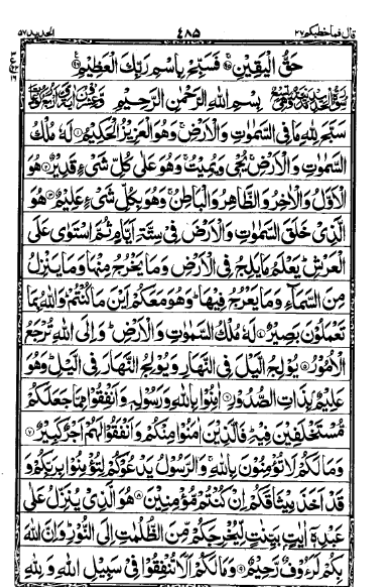 قال فما خطبكم ٢٧ ٤٨٥ الحديد ٥٧
حَقُّ الْيَقِيْنِ ۚ فَسَبِّحْ بِاسْمِ رَبِّكَ الْعَظِيْمِ
بِسْمِ اللهِ الرَّحْمٰنِ الرَّحِيْمِ
سَبَّحَ لِلّٰهِ مَا فِي السَّمٰوٰتِ وَالْاَرْضِ ۚ وَهُوَ الْعَزِيْزُ الْحَكِيْمُ ۝ لَهٗ مُلْكُ
السَّمٰوٰتِ وَالْاَرْضِ ۚ يُحْيٖ وَيُمِيْتُ ۚ وَهُوَ عَلٰى كُلِّ شَيْءٍ قَدِيْرٌ ۝ هُوَ
الْاَوَّلُ وَالْاٰخِرُ وَالظَّاهِرُ وَالْبَاطِنُ ۚ وَهُوَ بِكُلِّ شَيْءٍ عَلِيْمٌ ۝ هُوَ
الَّذِيْ خَلَقَ السَّمٰوٰتِ وَالْاَرْضَ فِيْ سِتَّةِ اَيَّامٍ ثُمَّ اسْتَوٰى عَلَى
الْعَرْشِ ؕ يَعْلَمُ مَا يَلِجُ فِي الْاَرْضِ وَمَا يَخْرُجُ مِنْهَا وَمَا يَنْزِلُ
مِنَ السَّمَآءِ وَمَا يَعْرُجُ فِيْهَا ؕ وَهُوَ مَعَكُمْ اَيْنَ مَا كُنْتُمْ ؕ وَاللهُ بِمَا
تَعْمَلُوْنَ بَصِيْرٌ ۝ لَهٗ مُلْكُ السَّمٰوٰتِ وَالْاَرْضِ ؕ وَاِلَى اللهِ تُرْجَعُ
الْاُمُوْرُ ۝ يُوْلِجُ الَّيْلَ فِي النَّهَارِ وَيُوْلِجُ النَّهَارَ فِي الَّيْلِ ؕ وَهُوَ
عَلِيْمٌۢ بِذَاتِ الصُّدُوْرِ ۝ اٰمِنُوْا بِاللهِ وَرَسُوْلِهٖ وَاَنْفِقُوْا مِمَّا جَعَلَكُمْ
مُّسْتَخْلَفِيْنَ فِيْهِ ؕ فَالَّذِيْنَ اٰمَنُوْا مِنْكُمْ وَاَنْفَقُوْا لَهُمْ اَجْرٌ كَبِيْرٌ ۝
وَمَا لَكُمْ لَا تُؤْمِنُوْنَ بِاللهِ ۚ وَالرَّسُوْلُ يَدْعُوْكُمْ لِتُؤْمِنُوْا بِرَبِّكُمْ وَ
قَدْ اَخَذَ مِيْثَاقَكُمْ اِنْ كُنْتُمْ مُّؤْمِنِيْنَ ۝ هُوَ الَّذِيْ يُنَزِّلُ عَلٰى
عَبْدِهٖٓ اٰيٰتٍۭ بَيِّنٰتٍ لِّيُخْرِجَكُمْ مِّنَ الظُّلُمٰتِ اِلَى النُّوْرِ ؕ وَاِنَّ اللهَ
بِكُمْ لَرَءُوْفٌ رَّحِيْمٌ ۝ وَمَا لَكُمْ اَلَّا تُنْفِقُوْا فِيْ سَبِيْلِ اللهِ وَلِلّٰهِ